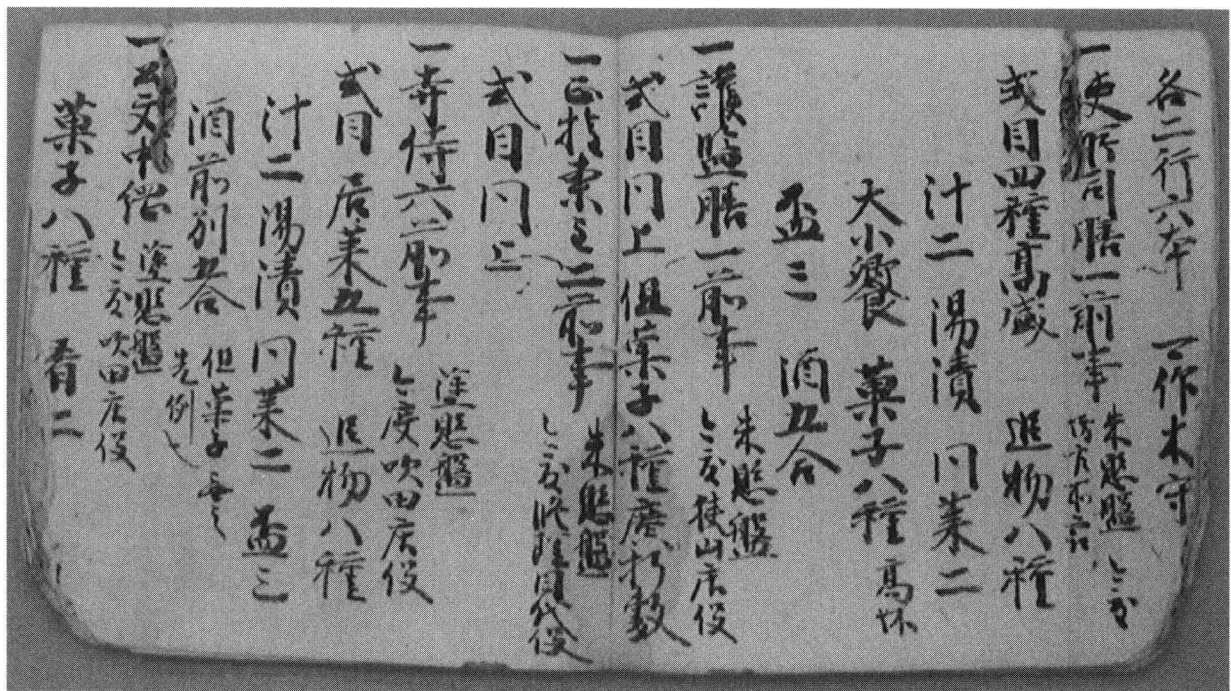 各二行六本 一作木守
一吏所司膳一前事 朱懸盤
式目四種高盛 追物八種
汁二 湯漬 同菜二
大小饗 菓子八種 高坏
盃三 酒五合
一讃監膳一前事 朱懸盤
今度狭山庄役
式目同上但菓子八種唐折敷
一正預東主二前事 朱懸盤
式目同上
一寺侍六前事 塗懸盤
今度吹田庄役
式目 居菜五種 追物八種
汁二 湯漬 同菜二 盃三
酒前別五合 但菓子無之
先例
一公文中僧 塗懸盤
今度吹田庄役
菓子八種 肴二